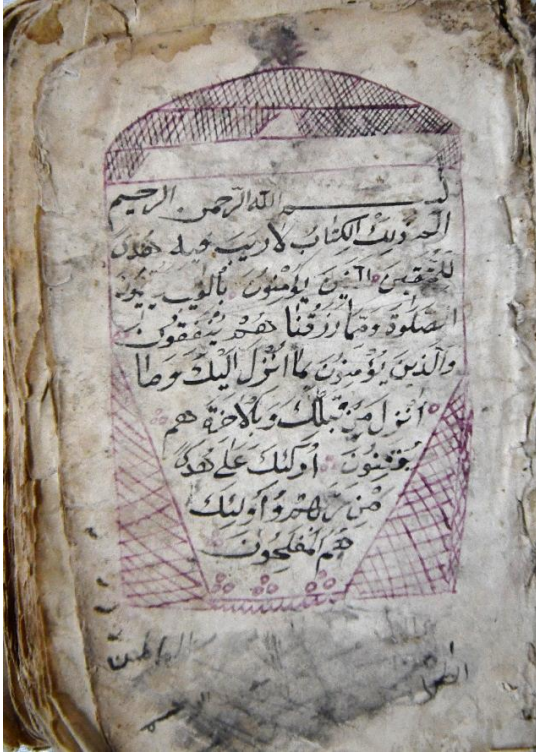 بسم الله الرحمن الرحيم
الم ذلك الكتاب لا ريب فيه هدى
للمتقين الذين يؤمنون بالغيب
الصلوة ومما رزقنا هم ينفقون
والذين يؤمنون بما انزل اليك وما
أنزل من قبلك وبالاخرة هم
يوقنون اولئك على هدى
من ربهم واولئك
هم المفلحون